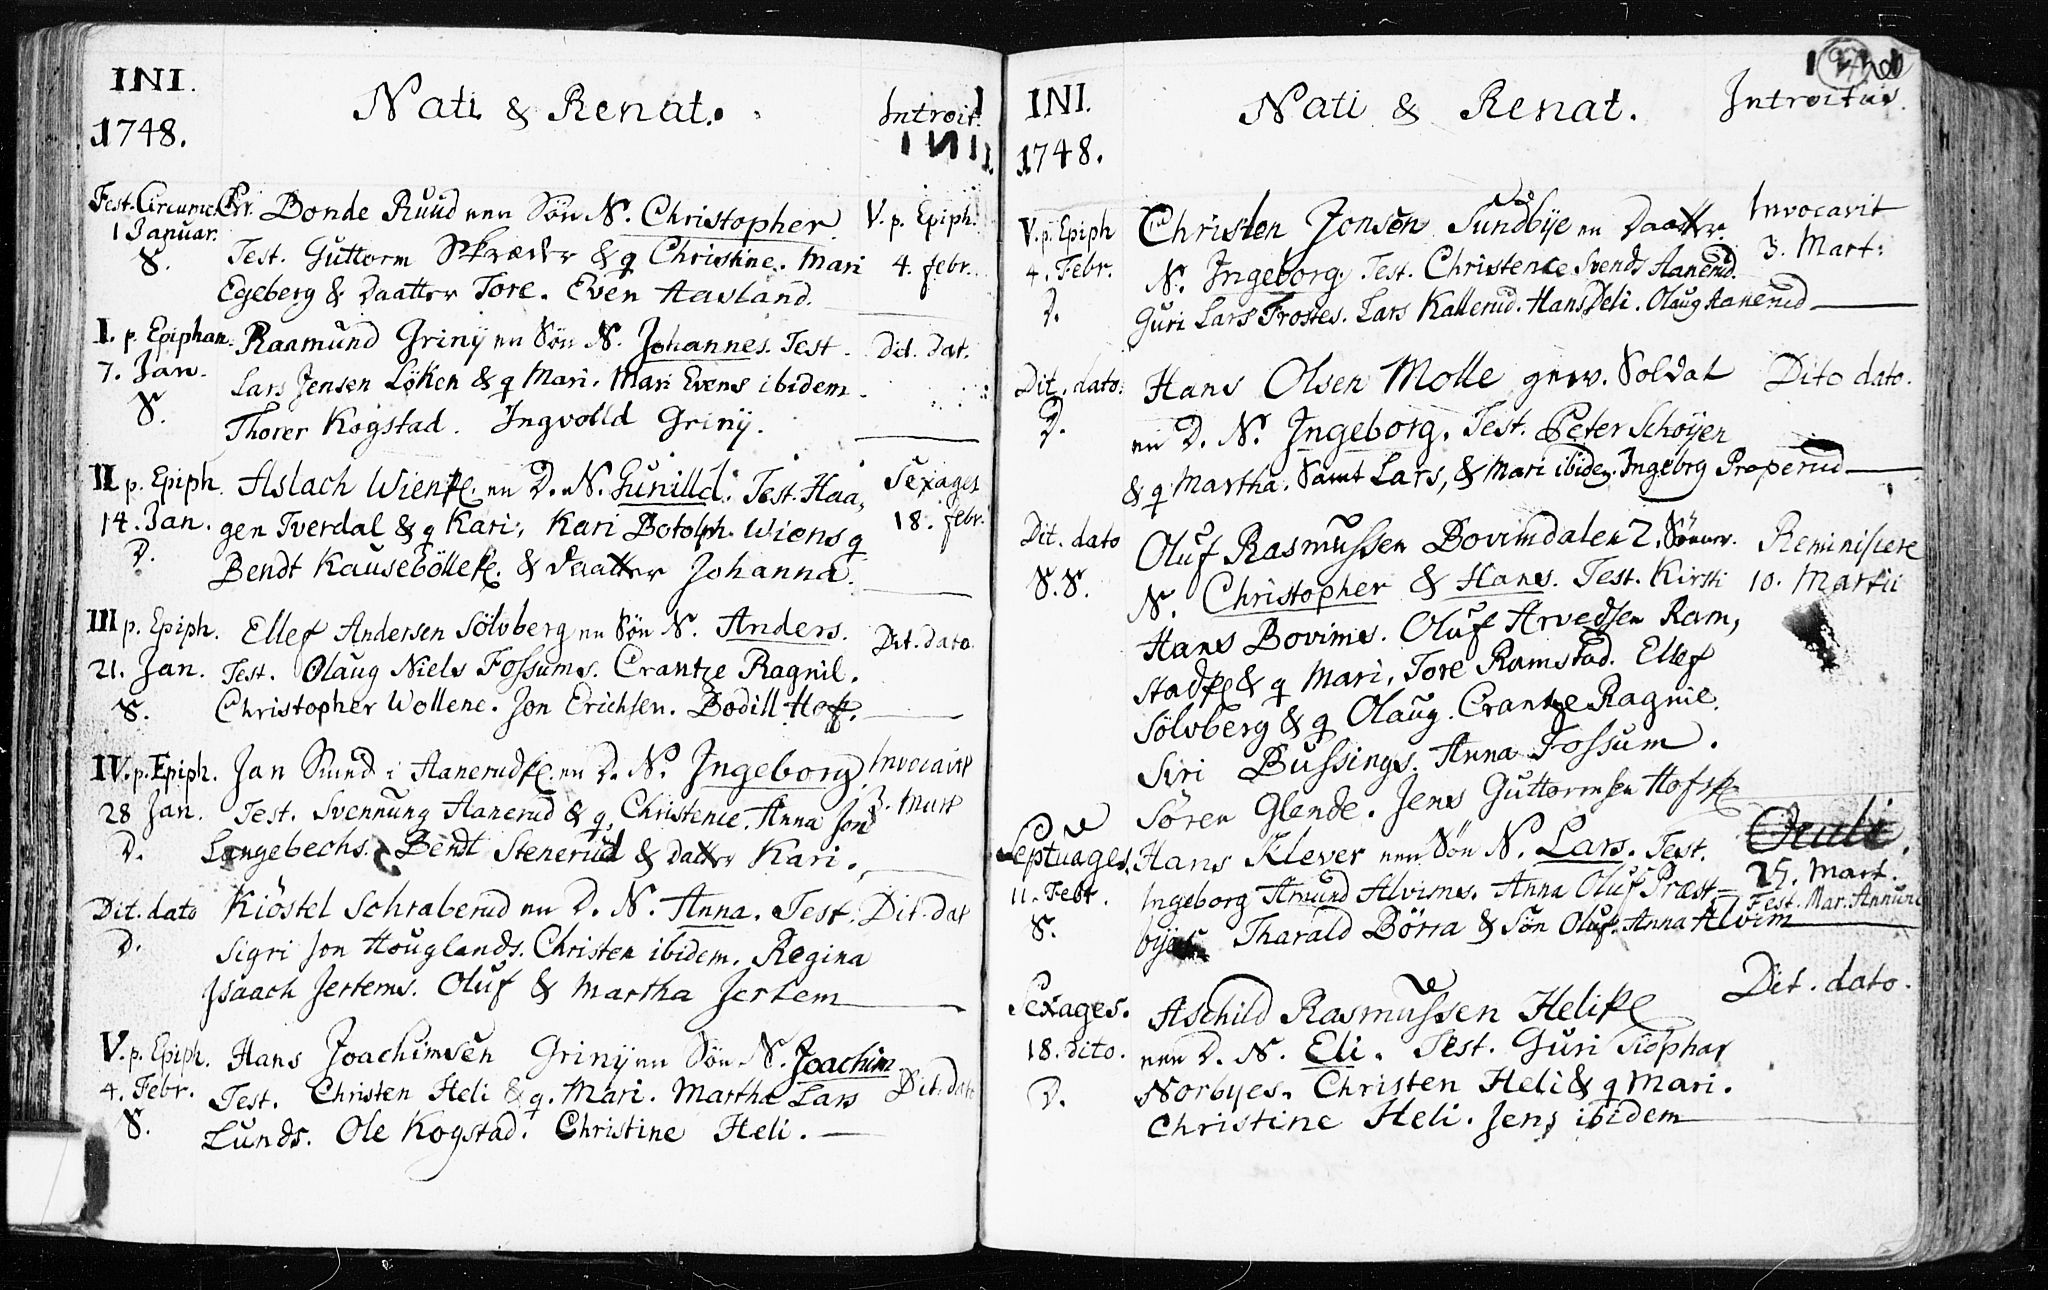 INI.
1748.
Nati & Renat.
Introit.
INI
Fest. Circumc. Chr. Bonde Ruud nen Sön N. Christopher. V. p. Epiph.
1 Januar. Test. Guttorm Skræder & q Christine. Mari 4. febr.
S. Egeberg & Daatter Tore. Even Havland.
I. p. Epiphan. Raamund Grinij en Sön N. Johannes. Test. Dit. Dat.
7. Jan. Lars Jensen Löken & q Mari. Mari Evens ibidem.
S. Thorer Kogstad. Ingvolld Grinij.
II p. Epiph. Aslach Wienſe. en D. N. Gunilld. Test. Haa, Sexages
14. Jan. gen Tverdal & q Kari, Kari Botolph Wiens q 18. febr.
D. Bendt Kausebölleſe. & Daatter Johanna.
III p. Epiph. Ellef Andersen Sölvberg en Sön N. Anders. Dit. dato
21. Jan. Test. Olaug Niels Fossums. Crantze Ragnil.
S. Christopher Wollene. Jon Erichsen. Bodill Hof.
IV. p. Epiph. Jan Smed i Hanerud en D. N. Ingeborg. Invocavit
28 Jan. Test. Svennung Hanerud & q. Christence. Anna Jon 3. Mart
D. Langebechs. Bendt Stenerud & Datter Kari.
Dit. dato Kiöstel Schraberud en D. N. Anna. Test. Dit. dat
D. Sigri Jon Houglands. Christen ibidem. Regina
Isaach Jertems. Oluf & Martha Jertem
V. p. Epiph. Hans Joachimsen Grinij en Sön N. Joachim
4. Febr. Test. Christen Heli & q. Mari. Martha Lars Dit. dat
S. Lunds. Ole Kogstad. Christine Heli.
INI.
1748.
Nati & Renat.
Introitus.
V. p. Epiph Christen Jonsen Sundbye en Daatter Invocavit
4. Febr. N. Ingeborg. Test. Christence Svends Hanerud. 3. Mart:
D. Guri Lars Frostes. Lars Kallerud. Hans Deli. Olaug Hanerud
Dit. dato. Hans Olsen Molle gew. Soldat Dito dato.
D. en D. N. Ingeborg. Test. Peter Schøyen
& q Martha. Samt Lars, & Mari ibidem. Ingeborg Properud
Dit. dato Oluf Rasmussen Bovimdalen 2. Sönner. Reminiscere
S. S. N. Christopher & Hans. Test. Kirsti 10. Martii
Hans Bovims. Oluf Arvedsen Ram,
stad & q Mari, Tore Ramstad. Ellef
Sölvberg & q Olaug. Crantze Ragnil.
Siri Bussings. Anna Fossum.
Sören Glende. Jens Guttormsen Hof
Septuages. Hans Klever nen Sön N. Lars. Test. Oculi.
11. Febr. Ingeborg Amund Alvims. Anna Oluf Præst= 25. Mart.
S. byes Tharald Börra & Sön Oluf. Anna Alvim Fest. Mar. Annunc
Sexages. Aschild Rasmussen Heli Dit. dato.
18. dito. nen D. N. Eli. Test. Guri Siöphar
D. Norbyes. Christen Heli & q Mari.
Christine Heli. Jens ibidem